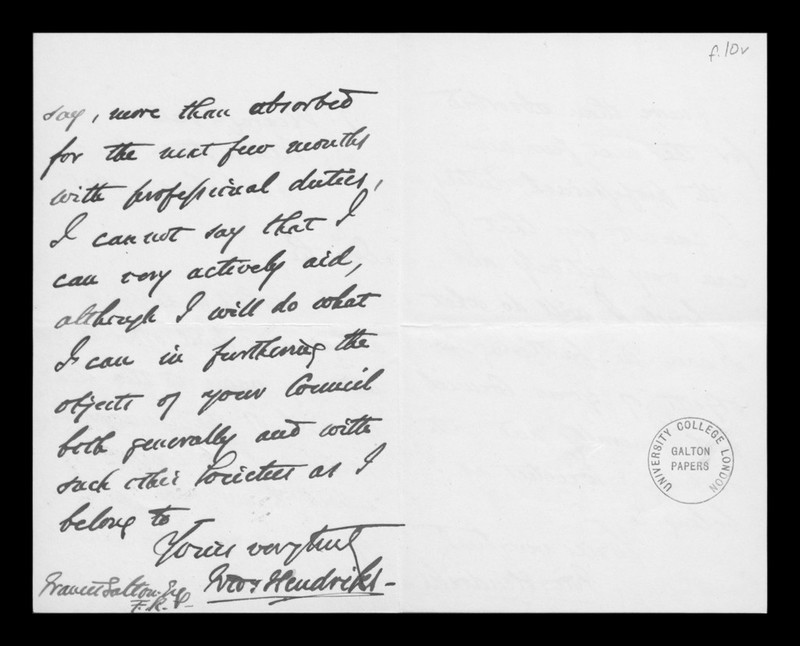 f.10v
say, more than absorbed
for the next few months
with professional duties,
I cannot say that I
can very actively aid,
although I will do what
I can in furthering the
objects of your Council
both generally and with
such other Societies as I
belong to
Yours very truly
Hendriks
Francis Galton Esq
F.R.S.
UNIVERSITY COLLEGE LONDON
GALTON
PAPERS